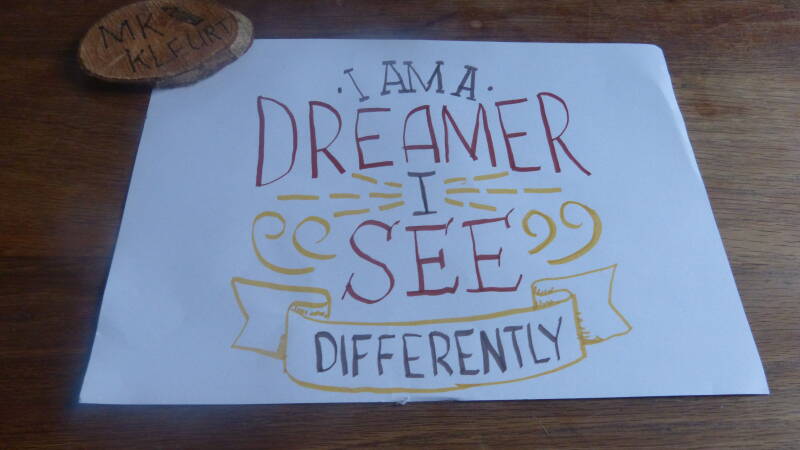 MK
KLFURT
· I AM A ·
DREAMER
I
SEE
DIFFERENTLY